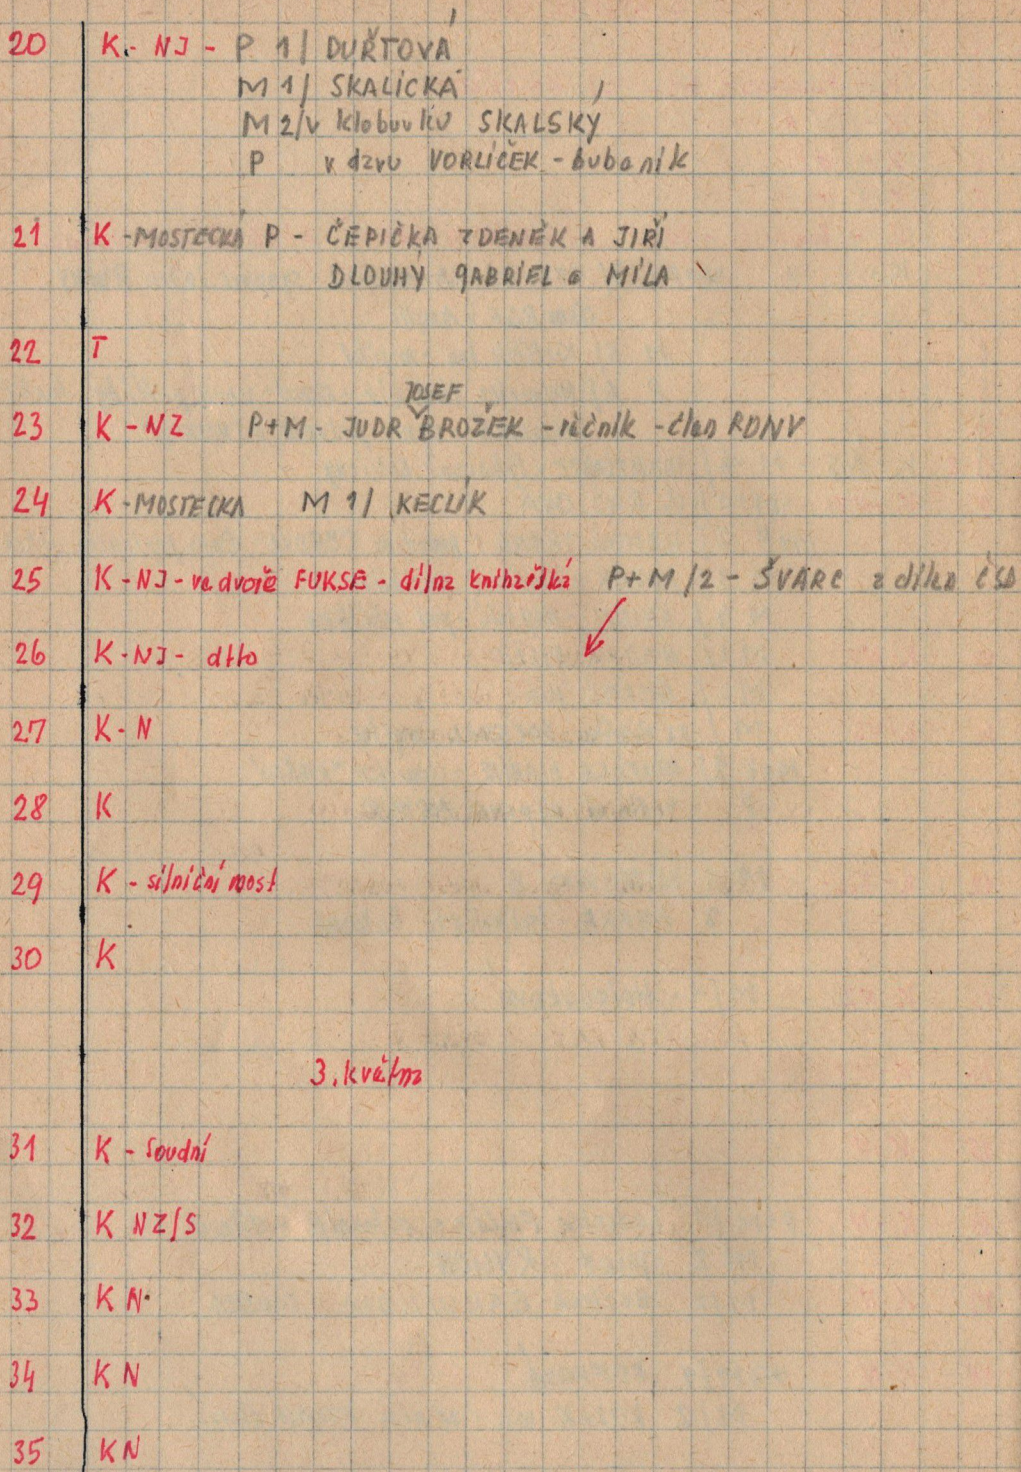 20 K - NJ - P 1/ DUŘTOVÁ
M 1/ SKALICKÁ
M 2/ v klobouku SKALSKÝ
P v dzvu VORLÍČEK - bubeník
21 K - MOSTECKÁ P - ČEPIČKA ZDENĚK A JIŘÍ
DLOUHÝ GABRIEL a MÍLA
22 T
JOSEF
23 K - NZ P+M - JUDR BROŽEK - řečník - člen RDNV
24 K - MOSTECKÁ M 1/ KECLÍK
25 K - NJ - ve dvoře FUKSE - dílna knihařská P+M /2 - ŠVARC z dílen ČSD
26 K - NJ - dtto
27 K - N
28 K
29 K - silniční most
30 K
3. května
31 K - soudní
32 K NZ/S
33 K N
34 K N
35 K N